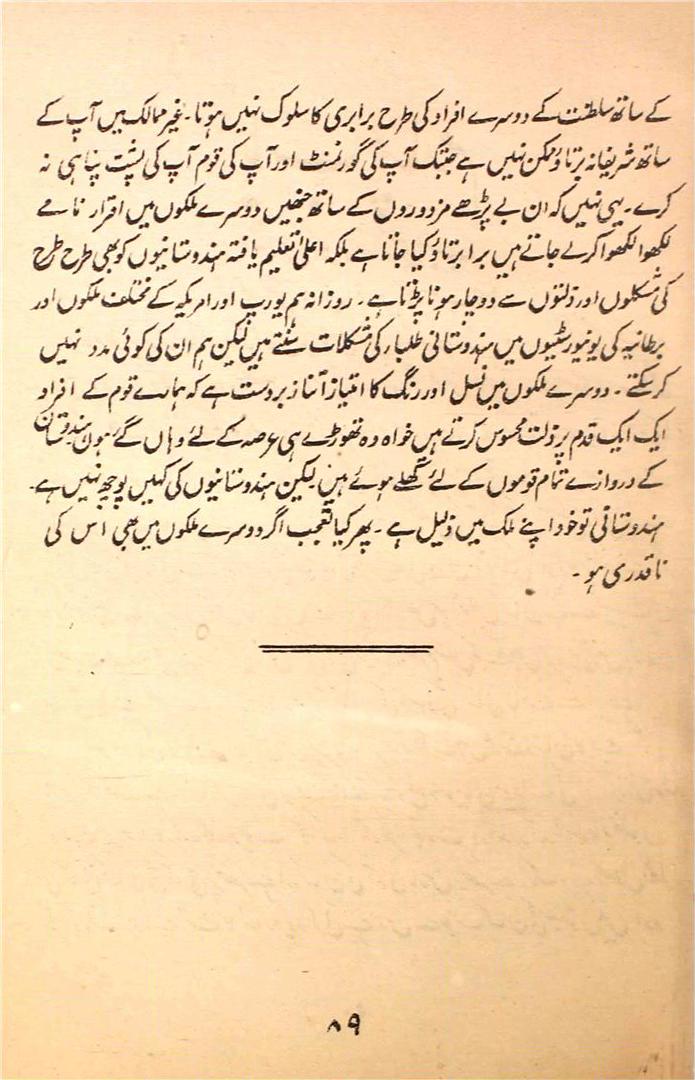 کے ساتھ سلطنت کے دوسرے افراد کی طرح برابری کا سلوک نہیں ہوتا۔ غیر ممالک میں آپ کے
ساتھ شریفانہ برتاؤ ممکن نہیں ہے جبتک آپ کی گورنمنٹ اور آپ کی قوم آپ کی پشت پناہی نہ
کرے۔ یہی نہیں کہ ان بے پڑھے مزدوروں کے ساتھ جنھیں دوسرے ملکوں میں اقرار نامے
لکھوا لکھوا کر لے جاتے ہیں برا برتاؤ کیا جاتا ہے بلکہ اعلیٰ تعلیم یافتہ ہندوستانیوں کو بھی طرح طرح
کی مشکلوں اور ذلتوں سے دوچار ہونا پڑتا ہے۔ روزانہ ہم یورپ اور امریکہ کے مختلف ملکوں اور
برطانیہ کی یونیورسٹیوں میں ہندوستانی طلباء کی مشکلات سنتے ہیں لیکن ہم ان کی کوئی مدد نہیں
کر سکتے۔ دوسرے ملکوں میں نسل اور رنگ کا امتیاز اتنا زبردست ہے کہ ہمارے قوم کے افراد
ایک ایک قدم پر ذلت محسوس کرتے ہیں خواہ وہ تھوڑے ہی عرصہ کے لئے وہاں گئے ہوں ہندوستان
کے دروازے تمام قوموں کے لئے کھلے ہوئے ہیں لیکن ہندوستانیوں کی کہیں پوچھ نہیں ہے۔
ہندوستانی تو خود اپنے ملک میں ذلیل ہے۔ پھر کیا تعجب اگر دوسرے ملکوں میں بھی اس کی
ناقدری ہو۔
۸۹